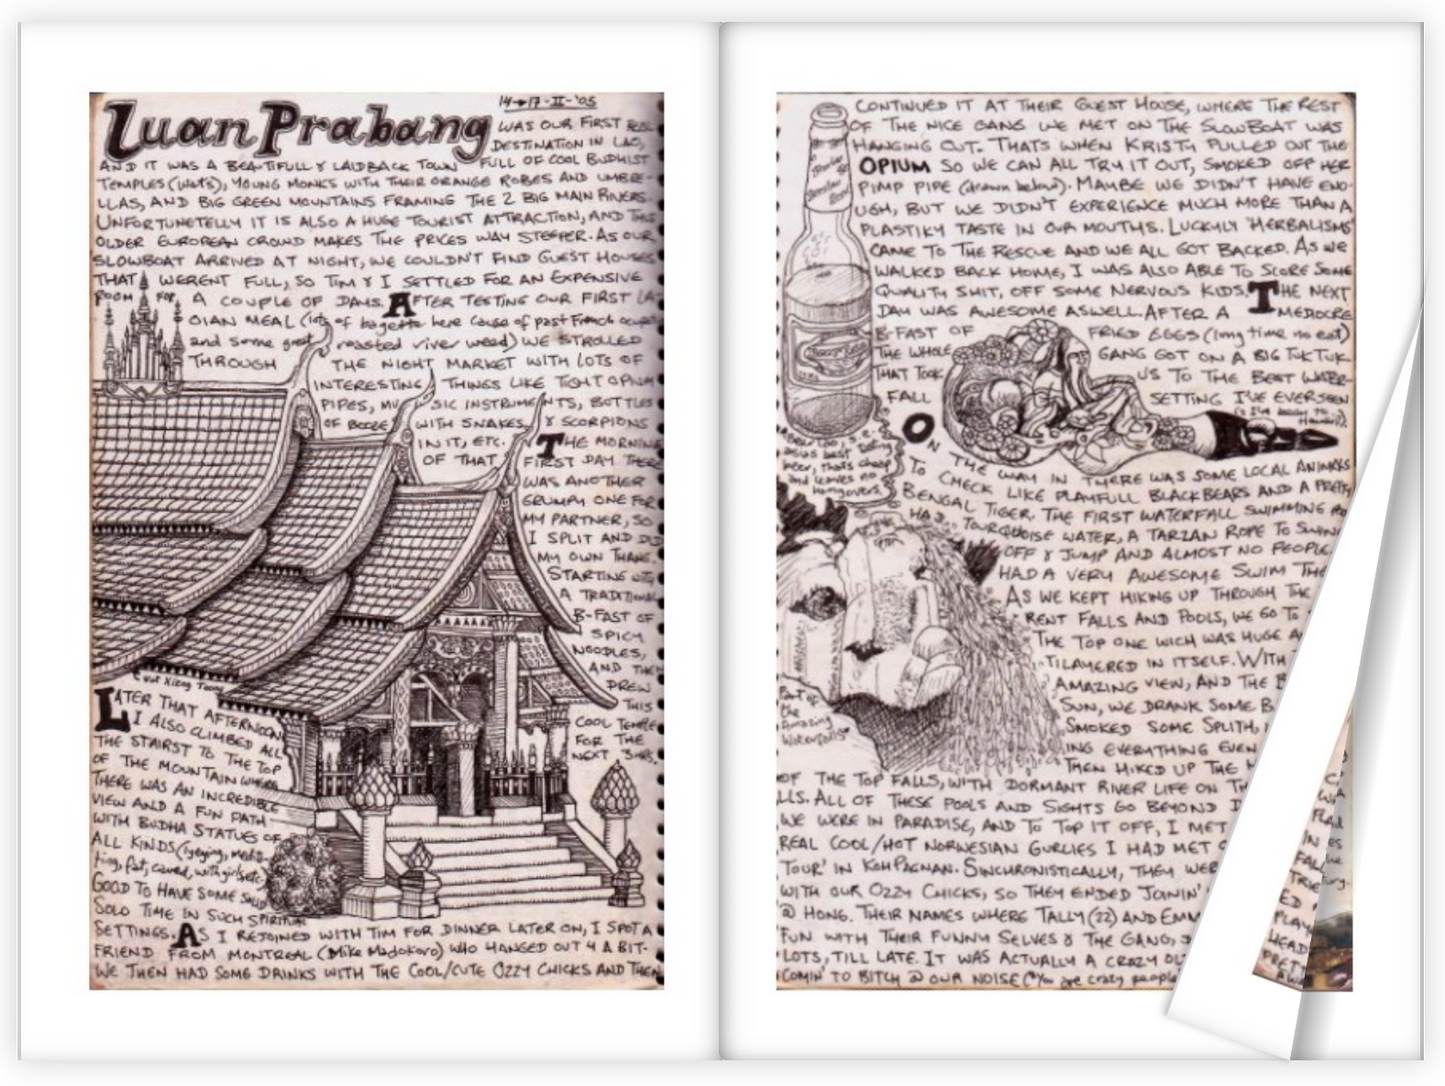 Luan Prabang
14→17-II-'05
WAS OUR FIRST REAL
DESTINATION IN LAO,
AND IT WAS A BEAUTIFULL & LAIDBACK TOWN FULL OF COOL BUDHIST
TEMPLES (Wats), YOUNG MONKS WITH THEIR ORANGE ROBES AND UMBRE-
LLAS, AND BIG GREEN MOUNTAINS FRAMING THE 2 BIG MAIN RIVERS.
UNFORTUNETELLY IT IS ALSO A HUGE TOURIST ATTRACTION, AND THIS
OLDER EUROPEAN CROWD MAKES THE PRICES WAY STEEPER. AS OUR
SLOWBOAT ARRIVED AT NIGHT, WE COULDN'T FIND GUEST HOUSES
THAT WERENT FULL, SO TIM & I SETTLED FOR AN EXPENSIVE
ROOM FOR A COUPLE OF DAYS. AFTER TESTING OUR FIRST LA-
OIAN MEAL (lots of bagette here cause of past French
and some great roasted river weed) WE STROLLED
THROUGH THE NIGHT MARKET WITH LOTS OF
INTERESTING THINGS LIKE TIGHT OPIUM
PIPES, MUSIC INSTRUMENTS, BOTTLES
OF BOOZE WITH SNAKES & SCORPIONS
IN IT, ETC. THE MORNING
OF THAT FIRST DAY THERE
WAS ANOTHER
GRUMPY ONE FOR
MY PARTNER, SO
I SPLIT AND DID
MY OWN THANG.
STARTING WITH
A TRADITIONAL
B-FAST OF
SPICY
NOODLES,
AND THEN
DREW
THIS
COOL TEMPLE
FOR THE
NEXT 3HRS.
Wat Xieng Toong
LATER THAT AFTERNOON
I ALSO CLIMBED ALL
THE STAIRST TO THE TOP
OF THE MOUNTAIN WHERE
THERE WAS AN INCREDIBLE
VIEW AND A FUN PATH
WITH BUDHA STATUES OF
ALL KINDS
ting, fat, caved, with girls, etc.)
GOOD TO HAVE SOME SOLID
SOLO TIME IN SUCH SPIRITUAL
SETTINGS. AS I REJOINED WITH TIM FOR DINNER LATER ON, I SPOT A
FRIEND FROM MONTREAL (Mike Madokoro) WHO HANGED OUT 4 A BIT.
WE THEN HAD SOME DRINKS WITH THE COOL/CUTE OZZY CHICKS AND THEN
CONTINUED IT AT THEIR GUEST HOUSE, WHERE THE REST
OF THE NICE GANG WE MET ON THE SLOWBOAT WAS
HANGING OUT. THAT'S WHEN KRISTY PULLED OUT THE
OPIUM SO WE CAN ALL TRY IT OUT, SMOKED OFF HER
PIMP PIPE (drawn below). MAYBE WE DIDN'T HAVE ENO-
UGH, BUT WE DIDN'T EXPERIENCE MUCH MORE THAN A
PLASTIKY TASTE IN OUR MOUTHS. LUCKYLY 'HERBALISMS'
CAME TO THE RESCUE AND WE ALL GOT BACKED. AS WE
WALKED BACK HOME, I WAS ALSO ABLE TO SCORE SOME
QUALITY SHIT, OFF SOME NERVOUS KIDS. THE NEXT
DAY WAS AWESOME ASWELL. AFTER A MEDIOCRE
B-FAST OF FRIED EGGS (long time no eat)
THE WHOLE GANG GOT ON A BIG TUKTUK
THAT TOOK US TO THE BEST WATER-
FALL SETTING I'VE EVER SEEN
Beer Lao, s.e.
asias best tasting
beer, thats cheap
and leaves no
hangovers.
ON THE WAY IN THERE WAS SOME LOCAL ANIMALS
TO CHECK LIKE PLAYFULL BLACK BEARS AND A PRETTY
BENGAL TIGER. THE FIRST WATERFALL SWIMMING
HAD TOURQUOISE WATER, A TARZAN ROPE TO SWING
OFF & JUMP AND ALMOST NO PEOPLE.
HAD A VERY AWESOME SWIM
AS WE KEPT HIKING UP THROUGH THE
RENT FALLS AND POOLS, WE GO TO
THE TOP ONE WICH WAS HUGE
TILAYERED IN ITSELF. WITH
AMAZING VIEW, AND THE
SUN, WE DRANK SOME
SMOKED SOME SPLITH,
ING EVERYTHING EVEN
THEN HIKED UP THE
Part of
the
Amazing
Waterfalls
OF THE TOP FALLS, WITH DORMANT RIVER LIFE ON
LLS. ALL OF THESE POOLS AND SIGHTS GO BEYOND
WE WERE IN PARADISE, AND TO TOP IT OFF, I MET
REAL COOL/HOT NORWESIAN GURLIES I HAD MET
TOUR' IN KOH PAGNAN. SINCHRONISTICALLY, THEY WER
WITH OUR OZZY CHICKS, SO THEY ENDED JOININ'
@ HONG. THEIR NAMES WHERE TALLY (22) AND EMM
FUN WITH THEIR FUNNY SELVES & THE GANG,
LOTS, TILL LATE. IT WAS ACTUALLY A CRAZY OL
COMIN' TO BITCH @ OUR NOISE ("You are crazy people